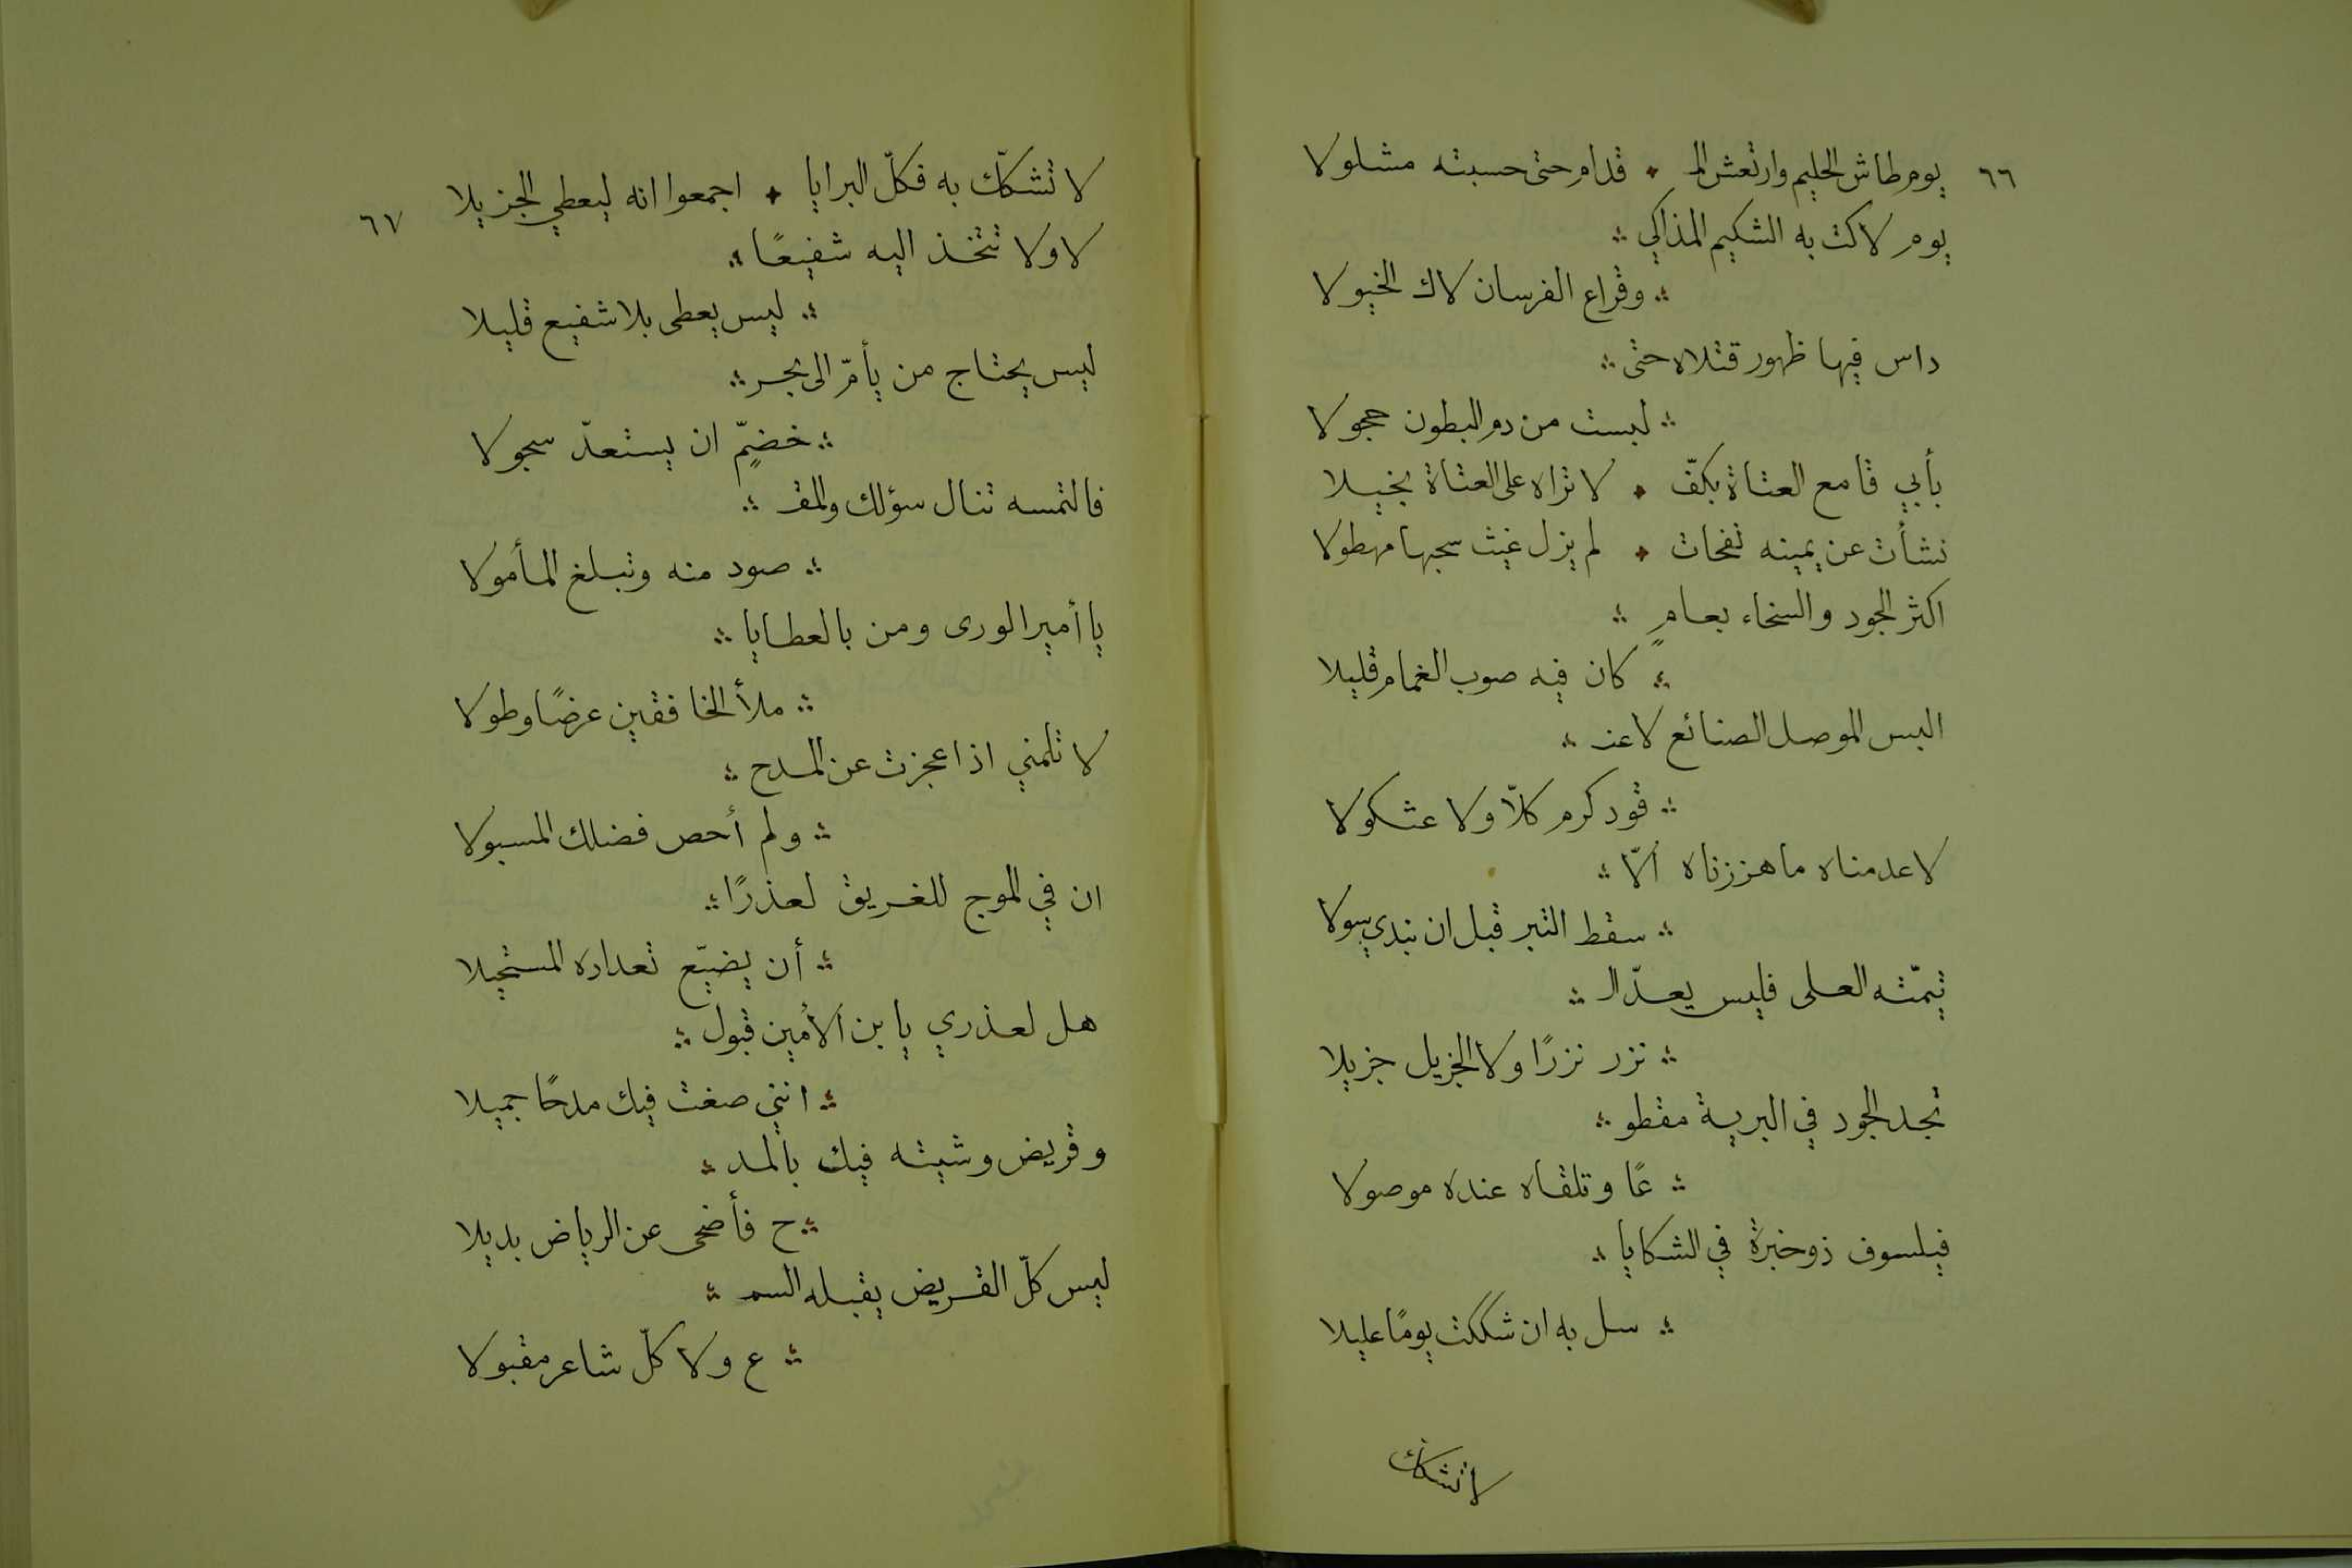 ٦٦
يوم طاش الحليم وارتعش الـ ؞ قدام حتى حسبته مشلولا
يوم لاكت به الشكيم المذاكي ؞
؞ وقراع الفرسان لاك الخيولا
داس فيها ظهور قتلاه حتى ؞
؞ لبست من دم البطون حجولا
بأبي قامع العتاة بكفّ ؞ لا تراه على العتاة بخيلا
نشأت عن يمينه نفحات ؞ لم يزل غيث سحبها مهطولا
اكثر الجود والسخاء بعامٍ ؞
؞ كان فيه صوب الغمام قليلا
البس الموصل الصنائع لاعنـ ؞
؞ قود كرم كلّا ولا عثكولا
لا عدمناه ما هززناه الّا ؞
؞ سقط التبر قبل ان نبدي سولا
تيمّته العلى فليس يعدّ الـ ؞
؞ نزر نزرًا ولا الجزيل جزيلا
تجد الجود في البرية مقطو ؞
؞ عًا وتلقاه عنده موصولا
فيلسوف ذو خبرة في الشكايا ؞
؞ سل به ان شككت يومًا عليلا
لا تشكك
٦٧
لا تشكّك به فكلّ البرايا ؞ اجمعوا انه ليعطي الجزيلا
لا ولا تتخذ اليه شفيعًا ؞
؞ ليس يعطى بلا شفيع قليلا
ليس يحتاج من يأمّ الى بحر ؞
؞ خضمٍّ ان يستعدّ سجولا
فالتمسه تنال سؤلك والمقـ ؞
؞ صود منه وتبلغ المأمولا
يا أمير الورى ومن بالعطايا ؞
؞ ملأ الخافقين عرضًا وطولا
لا تلمني اذا عجزت عن المدح ؞
؞ ولم أحص فضلك المسبولا
ان في الموج للغريق لعذرًا ؞
؞ أن يضيّع تعداده المستحيلا
هل لعذري يا بن الأمين قبول ؞
؞ انني صغت فيك مدحًا جميلا
وقريض وشيته فيك بالمد ؞
؞ ح فأضحى عن الرياض بديلا
ليس كلّ القريض يقبله السمـ ؞
؞ ع ولا كلّ شاعر مقبولا